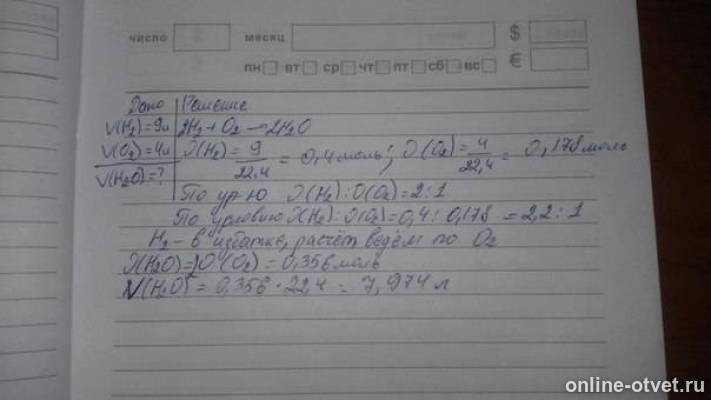 число месяц $
пн вт ср чт пт сб вс €
Дано Решение
V(H₂)=9л 2H₂+O₂→2H₂O
V(O₂)=4л ν(H₂)=9/22,4=0,4моль; ν(O₂)=4/22,4=0,178моль
V(H₂O)=?
По ур-ю ν(H₂):ν(O₂)=2:1
По условию ν(H₂):ν(O₂)=0,4:0,178=2,2:1
H₂-в избытке, расчёт ведём по O₂
ν(H₂O)=2ν(O₂)=0,356моль
V(H₂O)=0,356·22,4=7,974л
online-otvet.ru